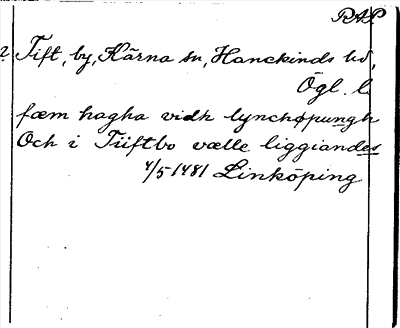 RAP
? Tift, by, Kärna sn, Hanekinds hd,
Ögl. l.
fæm hagha vidh lynchøpungh
Och i Tiiftbo vælle liggiandes
4/5 1481 Linköping